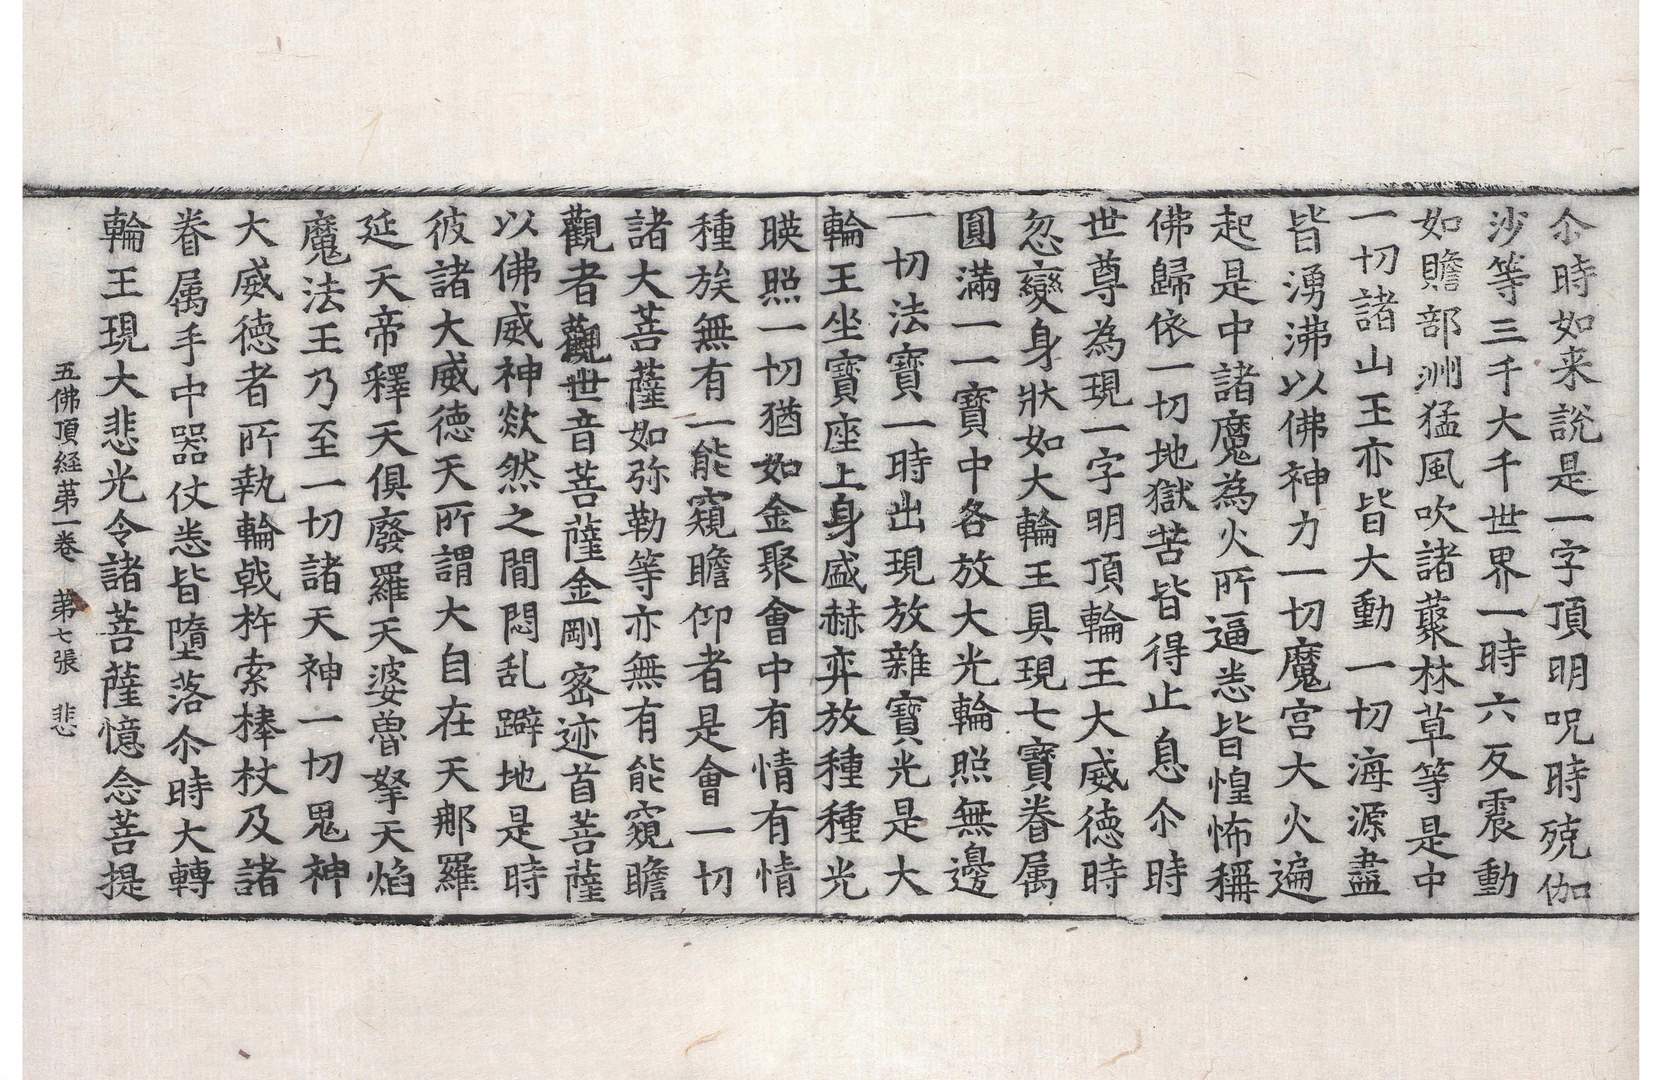 尒時如来說是一字頂明呪時殑伽
沙等三千大千世界一時六反震動
如贍部洲猛風吹諸藂林草等是中
一切諸山王亦皆大動一切海源盡
皆湧沸以佛神力一切魔宮大火遍
起是中諸魔為火所逼悉皆惶怖稱
佛歸依一切地獄苦皆得止息尒時
世尊為現一字明頂輪王大威德時
忽變身狀如大輪王具現七寶眷属
圓滿一一寶中各放大光輪照無邊
一切法寶一時出現放雜寶光是大
輪王坐寶座上身盛赫弈放種種光
暎照一切猶如金聚會中有情有情
種族無有一能窺瞻仰者是會一切
諸大菩薩如弥勒等亦無有能窺瞻
觀者觀世音菩薩金剛宻迹首菩薩
以佛威神欻然之間悶乱躃地是時
彼諸大威德天所謂大自在天那羅
延天帝釋天俱廢羅天婆魯拏天焰
魔法王乃至一切諸天神一切鬼神
大威德者所執輪戟杵索棒杖及諸
眷属手中器仗悉皆墮落尒時大轉
輪王現大悲光令諸菩薩憶念菩提
五佛頂経苐一卷 苐七張 悲